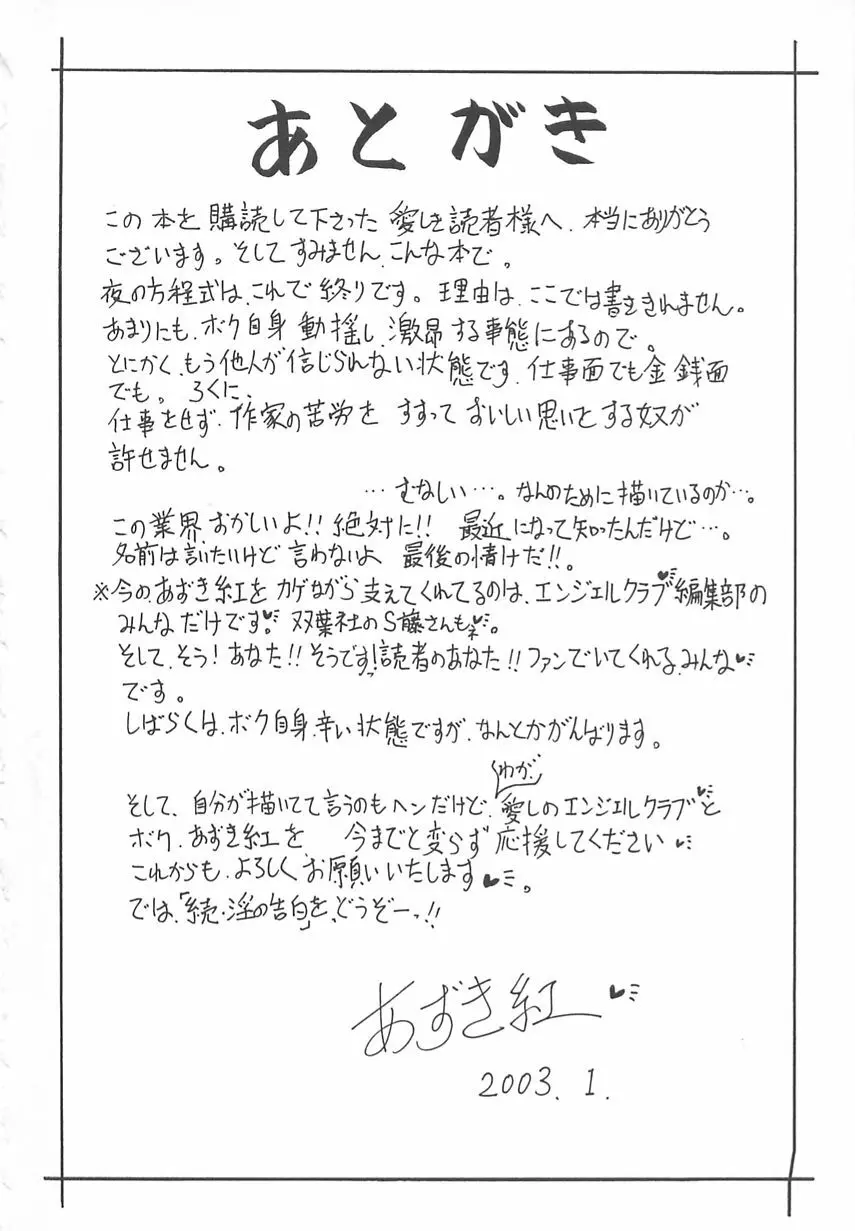 あとがき
この本を購読して下さった愛しき読者様へ、本当にありがとう
ございます。そしてすみません、こんな本で。
夜の方程式は、これで終りです。理由は、ここでは書ききれません。
あまりにも、ボク自身動揺し、激昂する事態にあるので。
とにかく、もう他人が信じられない状態です、仕事面でも金銭面
でも。ろくに、
仕事をせず、作家の苦労をすすっておいしい思いをする奴が
許せません。
…むなしい…。なんのために描いているのか…。
この業界、おかしいよ!!絶対に!!最近になって知ったんだけど…。
名前は言いたいけど言わないよ 最後の情けだ!!。
※今の、あずき紅をカゲながら支えてくれてるのは、エンジェルクラブ♥編集部の
みんなだけです♥。双葉社のS藤さんもネ♥。
そして、そう!あなた!!そうです!読者のあなた!!ファンでいてくれる、みんな♥
です。
しばらくは、ボク自身、辛い状態ですが、なんとかがんばります。
わが、
そして、自分が描いてて言うのもヘンだけど、愛しのエンジェルクラブ♥と
ボク、あずき紅を 今までと変らず応援してください♥
これからも、よろしくお願いいたします♥。
では、「続・淫の告白」を、どうぞーッ!!
あずき紅♥
2003.1.